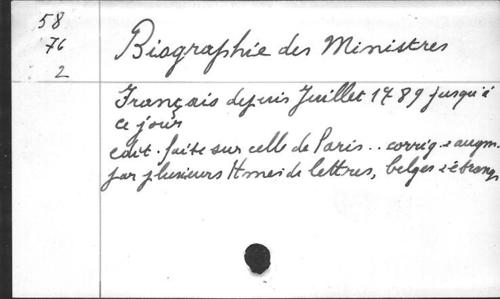 58
76
2
Biographie des Ministres
Français depuis Juillet 1789 jusqu'à
ce jour
edit. faite sur celle de Paris.. corrig. e augm.
par plusieurs Hmes de lettres, belges e étrang